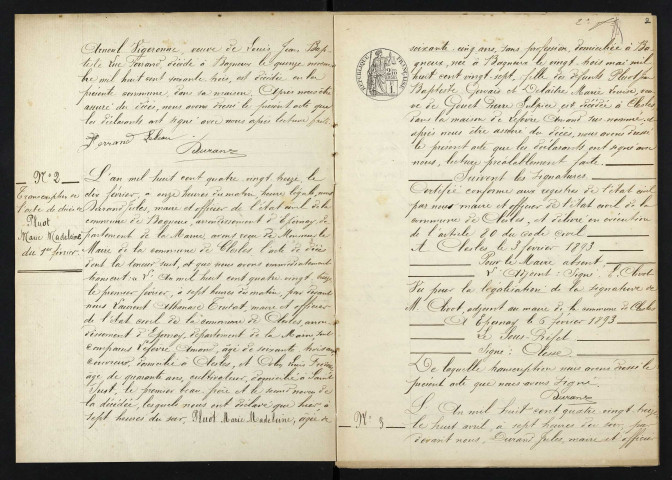 Arnoul Vigoronne, veuve de Louis Jean Bap-
tiste Luc Ferrand, décédé à Bagneux le quinze
mil huit cent soixante trois, est décédée en la
présente commune dans sa maison. Après nous être
assuré du décès, nous avons dressé le présent acte que
les déclarants ont signé avec nous après lecture faite.
Ferrand
Durand
N° 2
Transcription de
l'acte de décès de
Pluot
Marie Madeleine
du 1er février
L'an mil huit cent quatre vingt treize, le
dix février, à onze heures du matin, heure légale, nous
Durand Jules, maire et officier de l'état civil de la
commune de Bagneux, arrondissement d'Epernay, dé-
partement de la Marne, avons reçu de Monsieur le
Maire de la commune de Clesles l'acte de décès
dont la teneur suit, et que nous avons immédiatement
transcrit : L'an mil huit cent quatre vingt treize
le premier février, à sept heures du matin, par devant
nous Laurent Athanase Trutat, maire et officier
de l'état civil de la commune de Clesles, arron-
dissement d'Epernay, département de la Marne, sont
comparus Lefèvre Amand, âgé de soixante trois ans
couvreur, domicilié à Clesles, et Colin Louis
âgé de quarante ans, cultivateur, domicilié à Saint
Just, le premier beau frère et le second neveu de
la décédée, lesquels nous ont déclaré que hier, à
sept heures du soir, Pluot Marie Madeleine, âgée de
2
REPUBLIQUE FRANÇAISE
soixante cinq ans, sans profession, domiciliée à Ba-
gneux, née à Bagneux le vingt trois mai mil
huit cent vingt sept, fille des défunts Pluot Jean
Baptiste Gervais et Delaitre Marie Louise, veu-
ve de Douet Pierre Sulpice est décédée à Clesles
dans la maison de Lefèvre Amand sus-nommé, et
après nous être assuré du décès, nous avons dressé
le présent acte que les déclarants ont signé avec
nous, lecture préalablement faite.
Suivent les signatures
Certifié conforme aux registres de l'état civil
par nous maire et officier de l'état civil de la
commune de Clesles, et délivré en exécution
de l'article 80 du code civil
A Clesles le 3 février 1893
Pour le Maire absent.
L'Adjoint : Signé :
Vu pour la légalisation de la signature de
M. adjoint au maire de la commune de Clesles
A Epernay le 6 février 1893
Le Sous-Préfet
Signé :
De laquelle transcription nous avons dressé le
présent acte que nous avons signé.
Durand
N° 3
L'An mil huit cent quatre vingt treize
le huit avril, à sept heures du soir, par
devant nous, Durand Jules, maire et officier